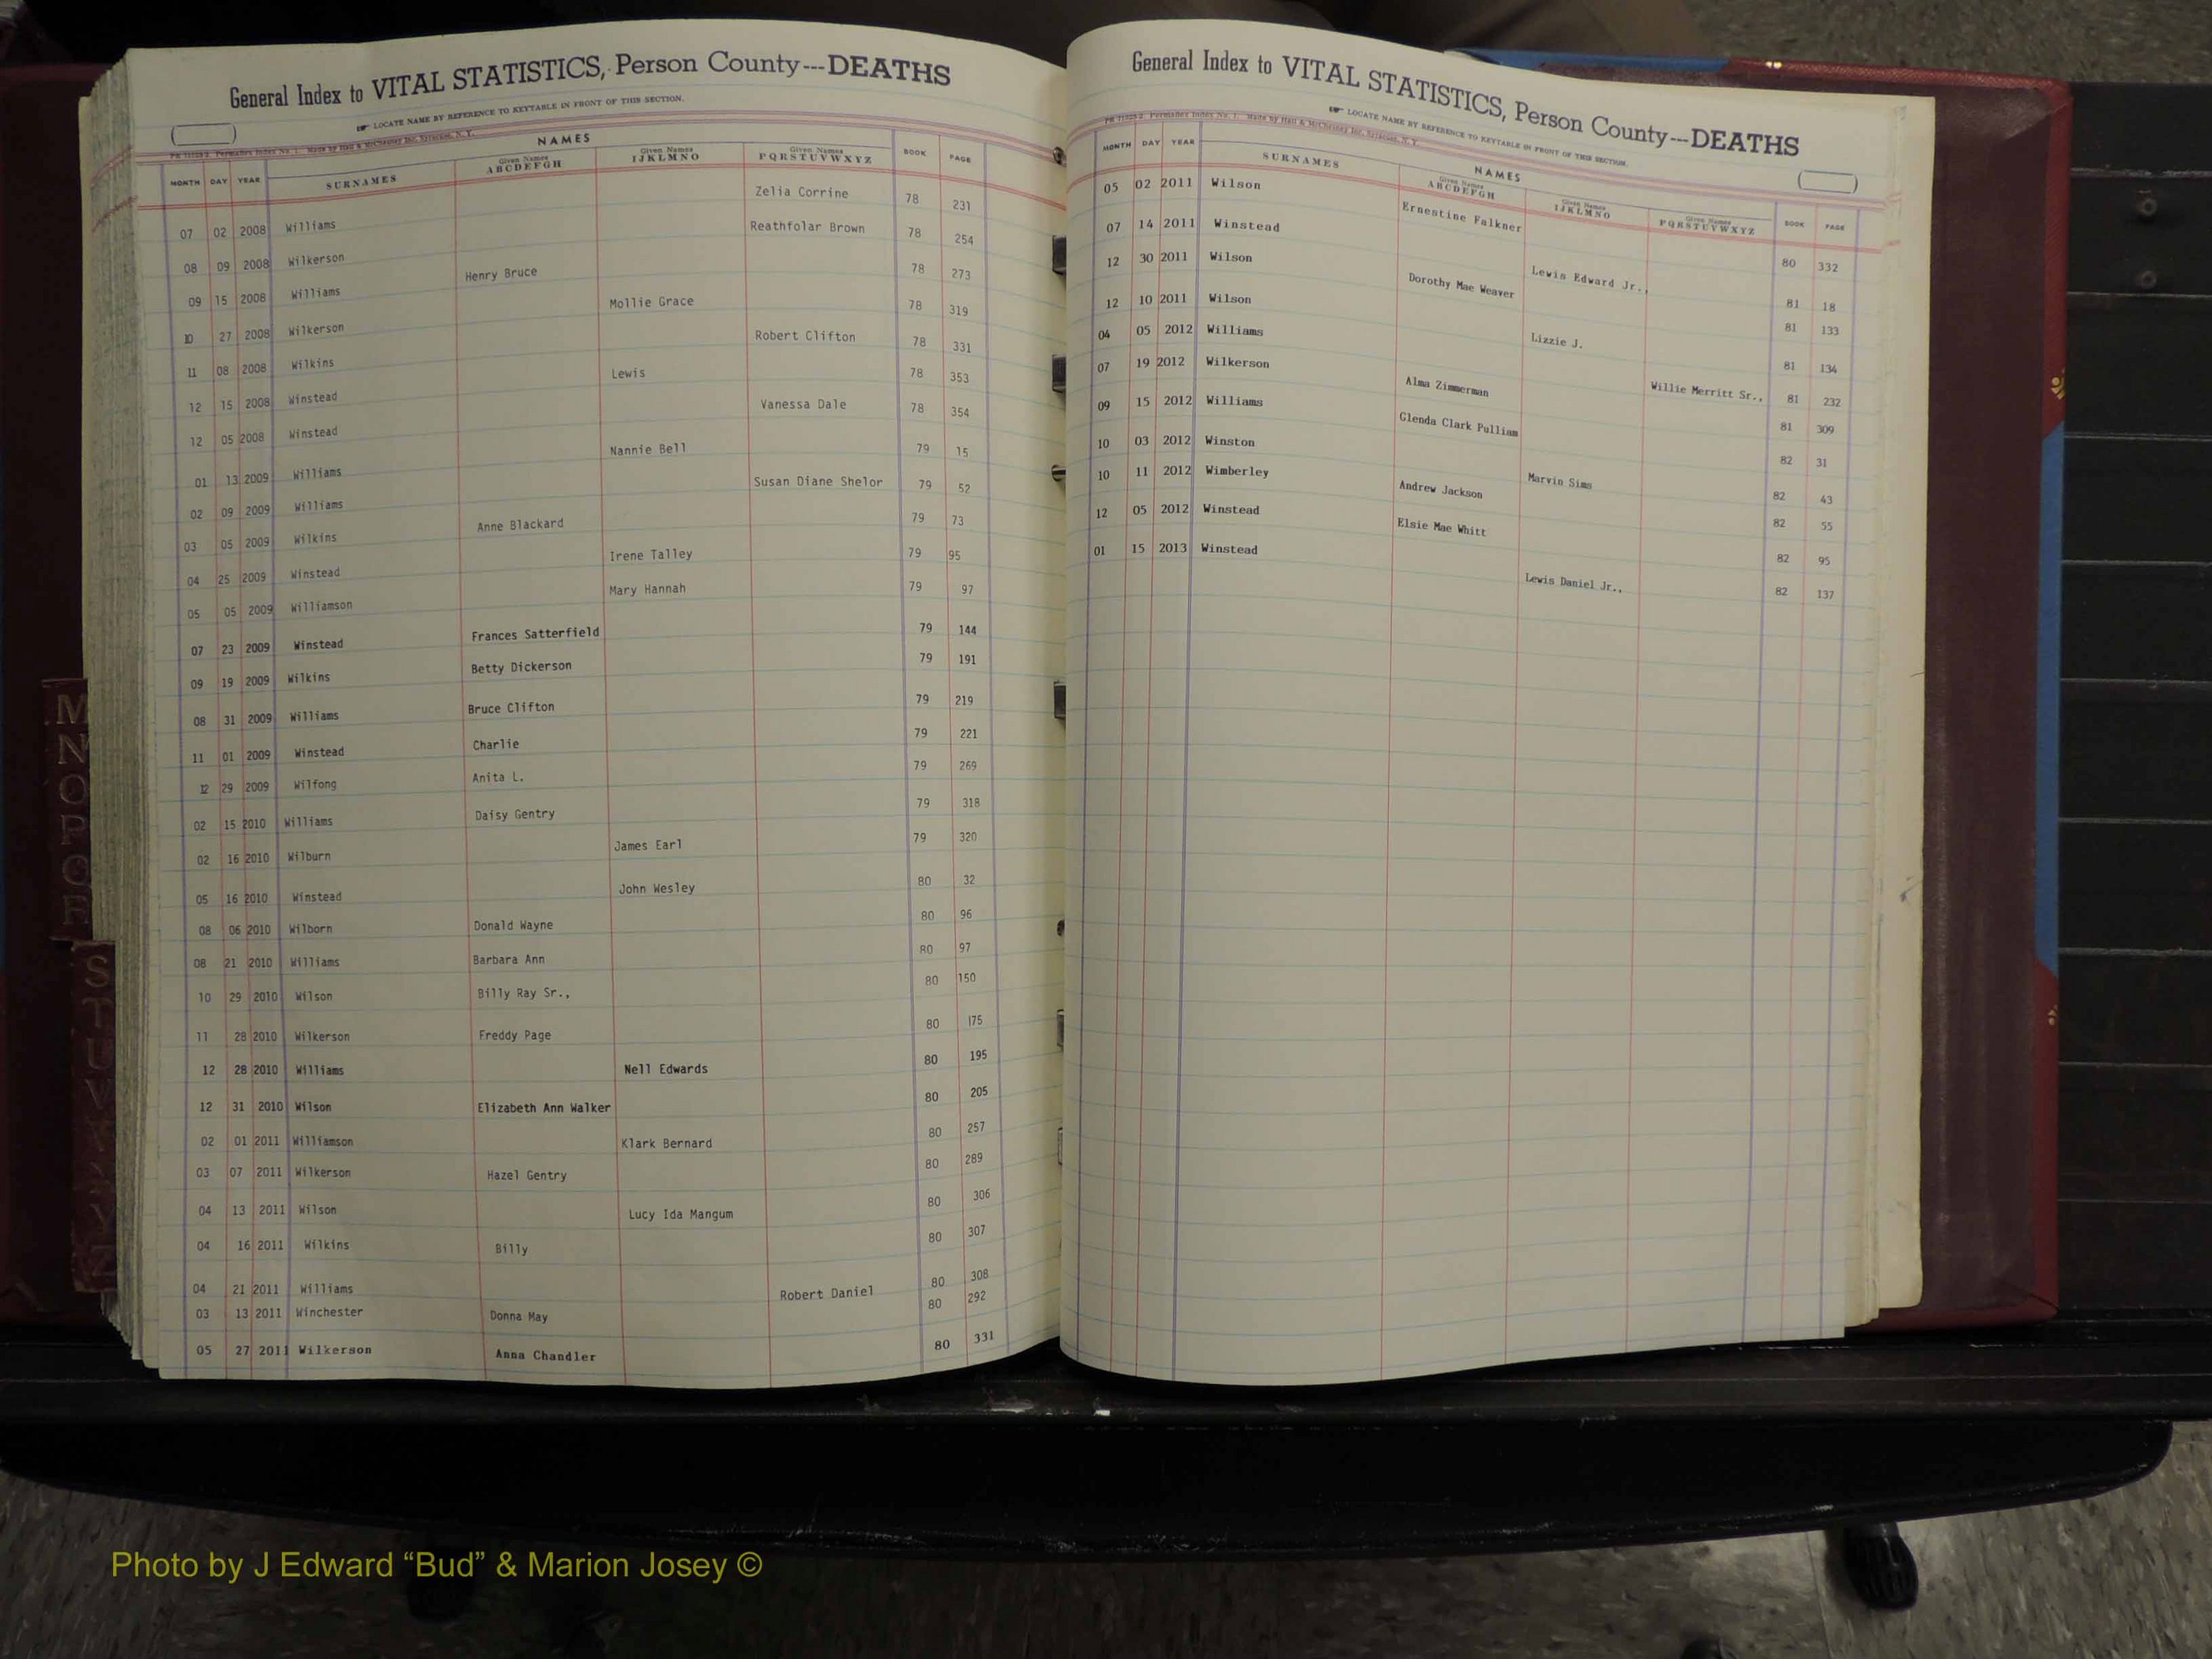 General Index to VITAL STATISTICS, Person County---DEATHS
LOCATE NAME BY REFERENCE TO KEYTABLE IN FRONT OF THIS SECTION.
NAMES
MONTH DAY YEAR SURNAMES Given Names ABCDEFGH Given Names IJKLMNO Given Names PQRSTUVWXYZ BOOK PAGE
07 02 2008 Williams Zelia Corrine 78 231
08 09 2008 Wilkerson Reathfolar Brown 78 254
09 15 2008 Williams Henry Bruce 78 273
10 27 2008 Wilkerson Mollie Grace 78 319
11 08 2008 Wilkins Robert Clifton 78 331
12 15 2008 Winstead Lewis 78 353
12 05 2008 Winstead Vanessa Dale 78 354
01 13 2009 Williams Nannie Bell 79 15
02 09 2009 Williams Susan Diane Shelor 79 52
03 05 2009 Wilkins Anne Blackard 79 73
04 25 2009 Winstead Irene Talley 79 95
05 05 2009 Williamson Mary Hannah 79 97
07 23 2009 Winstead Frances Satterfield 79 144
09 19 2009 Wilkins Betty Dickerson 79 191
08 31 2009 Williams Bruce Clifton 79 219
11 01 2009 Winstead Charlie 79 221
12 29 2009 Wilfong Anita L. 79 269
02 15 2010 Williams Daisy Gentry 79 318
02 16 2010 Wilburn James Earl 79 320
05 16 2010 Winstead John Wesley 80 32
08 06 2010 Wilborn Donald Wayne 80 96
08 21 2010 Williams Barbara Ann 80 97
10 29 2010 Wilson Billy Ray Sr., 80 150
11 28 2010 Wilkerson Freddy Page 80 175
12 28 2010 Williams Nell Edwards 80 195
12 31 2010 Wilson Elizabeth Ann Walker 80 205
02 01 2011 Williamson Klark Bernard 80 257
03 07 2011 Wilkerson Hazel Gentry 80 289
04 13 2011 Wilson Lucy Ida Mangum 80 306
04 16 2011 Wilkins Billy 80 307
04 21 2011 Williams Robert Daniel 80 308
03 13 2011 Winchester Donna May 80 292
05 27 2011 Wilkerson Anna Chandler 80 331
General Index to VITAL STATISTICS, Person County---DEATHS
LOCATE NAME BY REFERENCE TO KEYTABLE IN FRONT OF THIS SECTION.
NAMES
MONTH DAY YEAR SURNAMES Given Names ABCDEFGH Given Names IJKLMNO Given Names PQRSTUVWXYZ BOOK PAGE
05 02 2011 Wilson Ernestine Falkner 80 332
07 14 2011 Winstead Lewis Edward Jr., 81 18
12 30 2011 Wilson Dorothy Mae Weaver 81 133
12 10 2011 Wilson Lizzie J. 81 134
04 05 2012 Williams Willie Merritt Sr., 81 232
07 19 2012 Wilkerson Alma Zimmerman 81 309
09 15 2012 Williams Glenda Clark Pulliam 82 31
10 03 2012 Winston Marvin Sims 82 43
10 11 2012 Wimberley Andrew Jackson 82 55
12 05 2012 Winstead Elsie Mae Whitt 82 95
01 15 2013 Winstead Lewis Daniel Jr., 82 137
Photo by J Edward “Bud” & Marion Josey ©